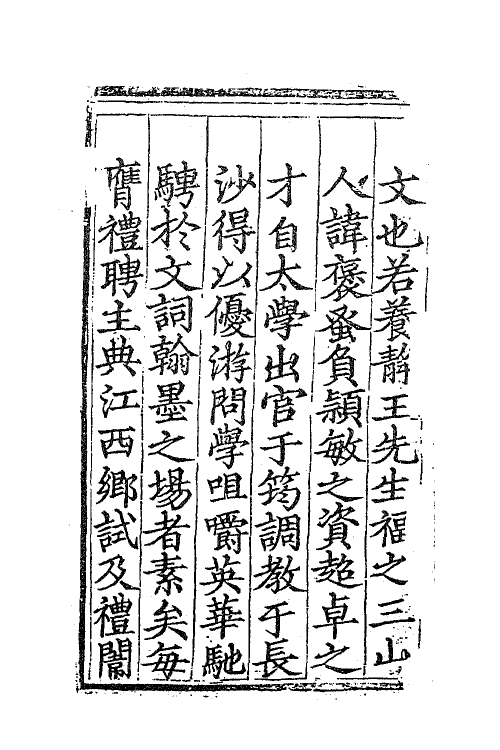 文也若養靜王先生福之三山
人諱褒蚤負穎敏之資超卓之
才自太學出官于筠調教于長
沙得以優游問學咀嚼英華馳
騁於文詞翰墨之場者素矣每
膺禮聘主典江西鄉試及禮闈